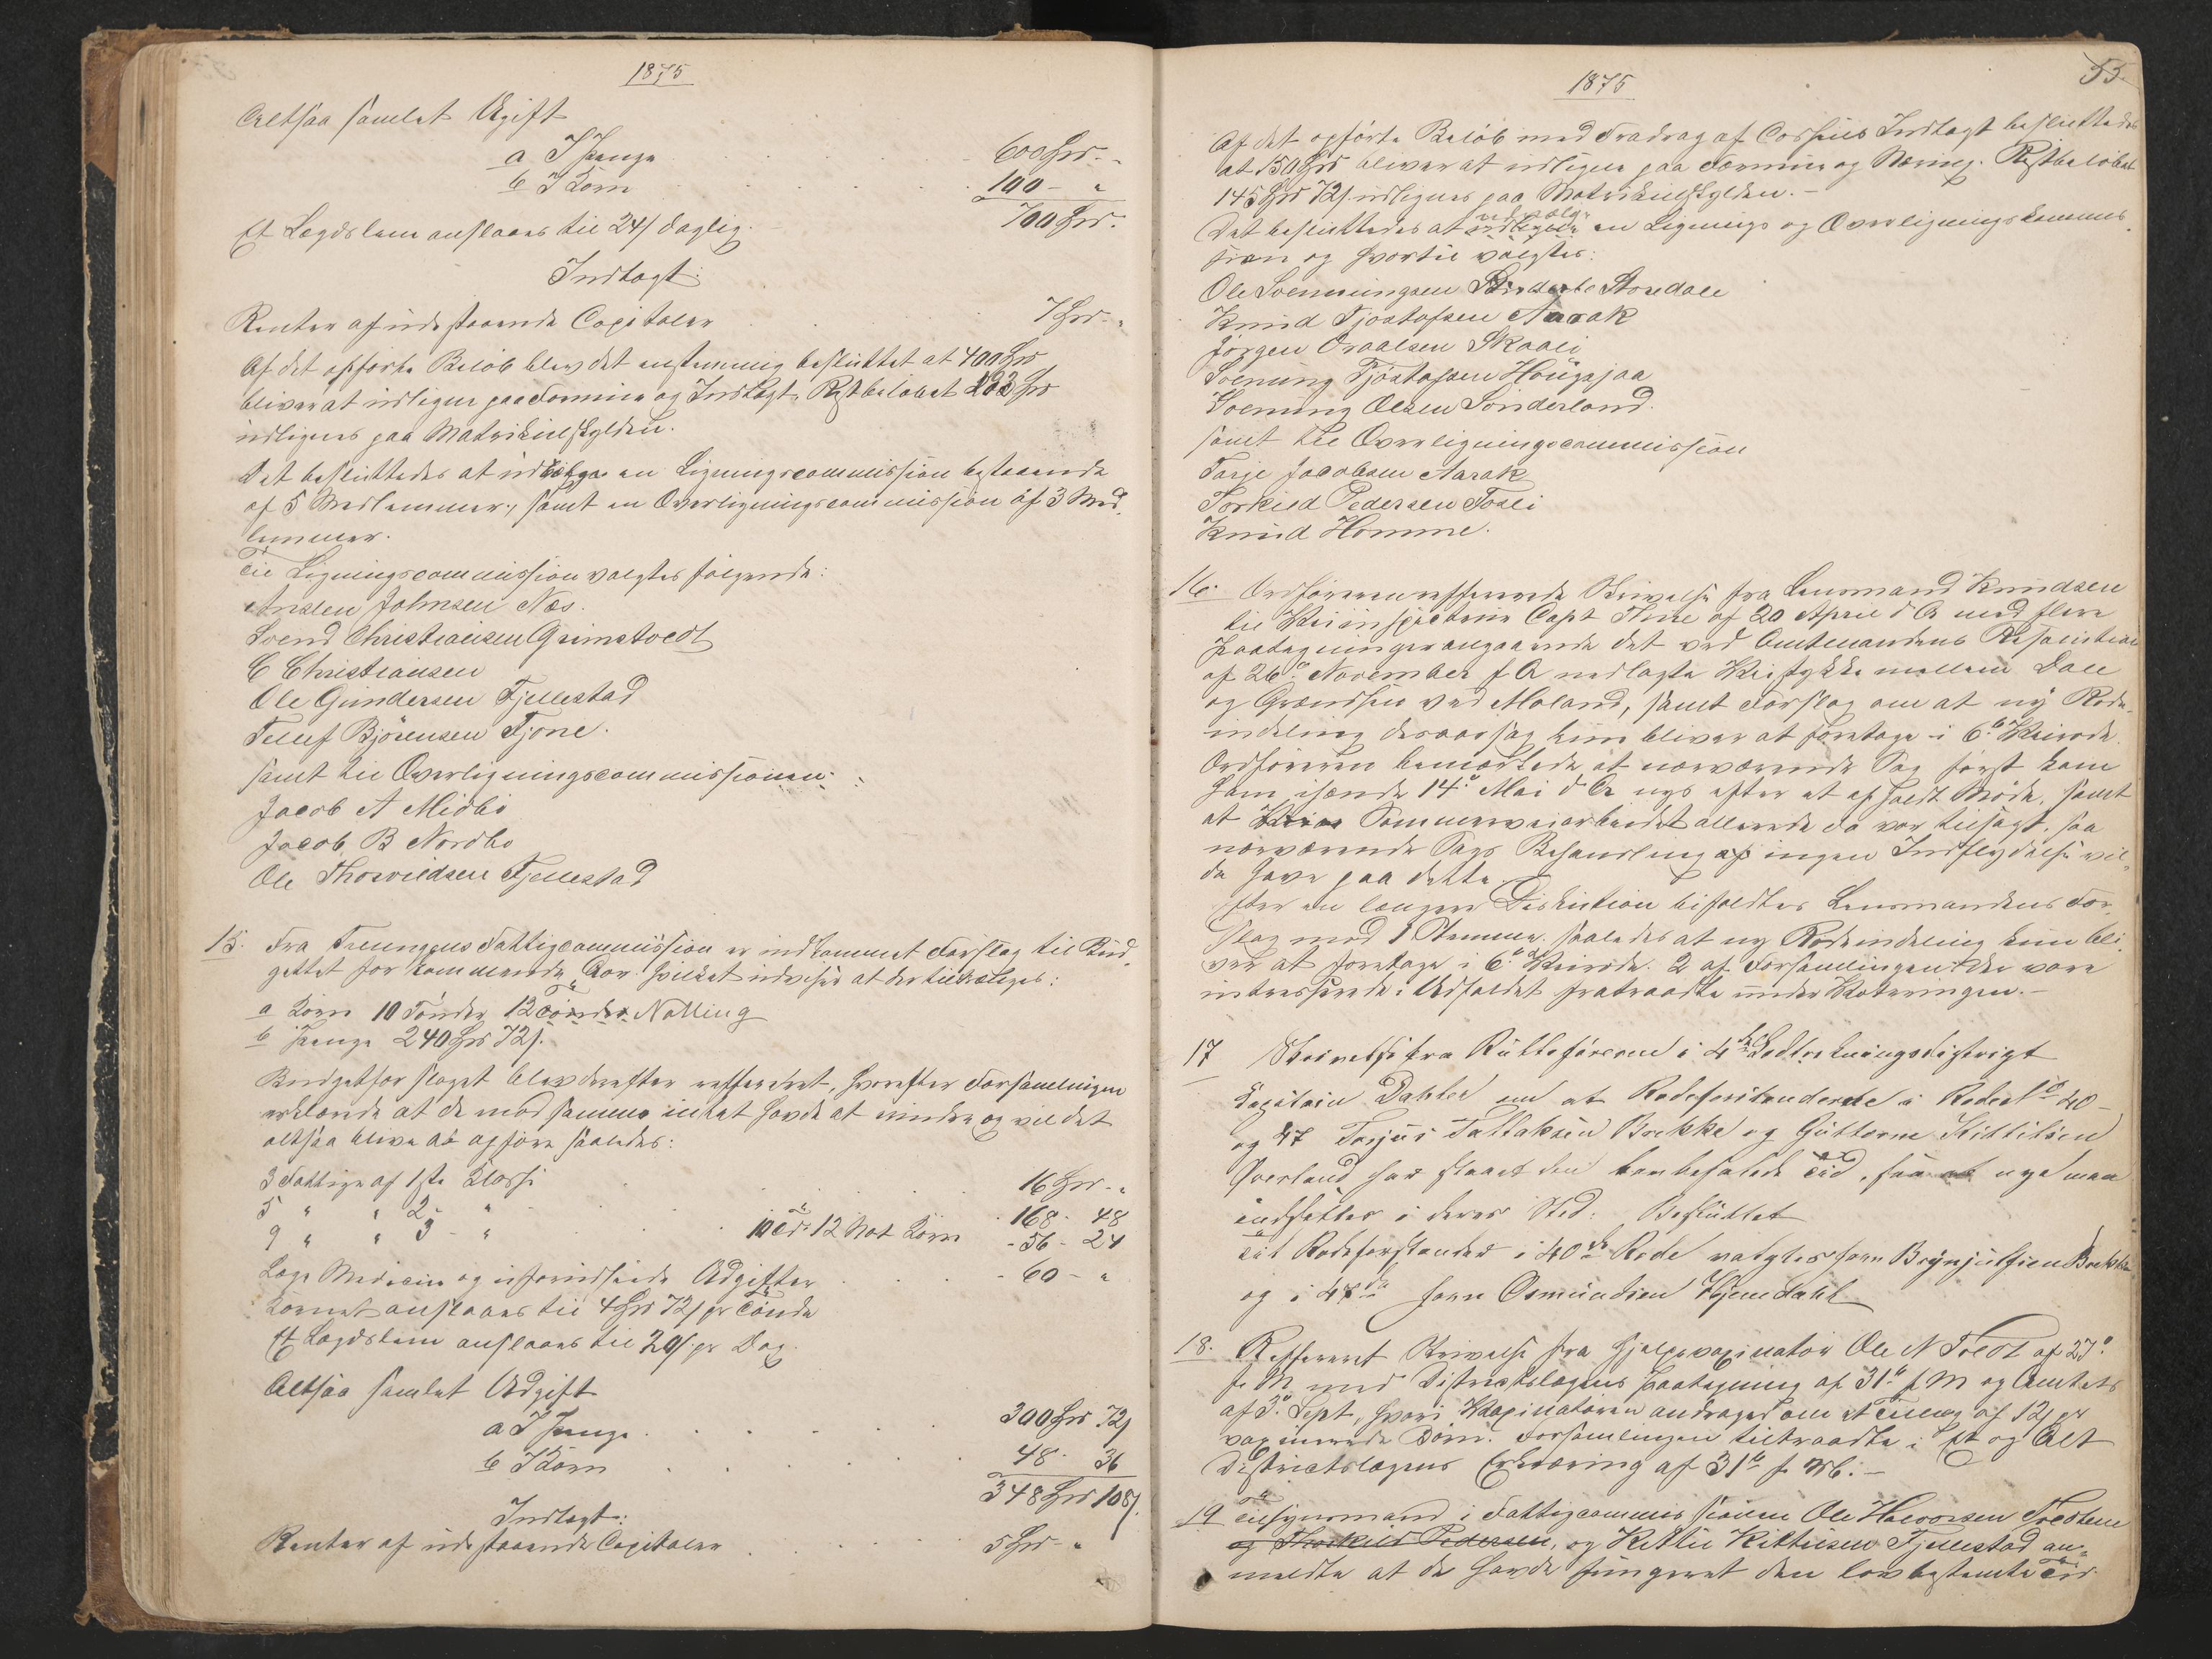 1875
Altsaa samlet Udgift
a I Penge 600 Spd. "
b I Korn 100 - "
700 Spd.
Et Lægdslem anslaaes til 24 s daglig.
Indtægt:
Renter af udestaaende Capitaler 7 Spd. "
Af det opførte Beløb blev det enstemmig besluttet at 400 Spd
bliver at udligne paa Formue og Indtægt, Restbeløbet 293 Spd
udlignes paa Matrikulskylden.
Det besluttedes at udvælge en Ligningscommission bestaaende
af 5 Medlemmer, samt en Overligningscommission af 3 Med-
lemmer.
Til Ligningscommission valgtes følgende:
Anslen Johnsen Næs.
Svend Christiansen Grimstvedt
C Christiansen
Ole Gundersen Fjellestad
Tellef Björensen Fjone.
samt til Overligningscommissionen:
Jacob A Midbö
Jacob B Nordbö
Ole Thorvildsen Fjellestad
15. Fra Treungens Fattigcommission er indkommet Forslag til Bud-
gettet for kommende Aar. hvilket udviser at der tiltrænges:
a Korn 10 Tønder 12 Notting
b Penge 240 Spd 72 s.
Budgetforslaget blev derefter reffereret, hvorefter Forsamlingen
erklærede at de mod samme intet havde at erindre og vil det
altsaa blive at opføre saaledes:
3 Fattige af 1ste Klasse 16 Spd. "
5 " " 2 - " 168 - 48
9 " " 3 - " 10 Td: 12 Not Korn - 56 - 24
Læge Medicin og uforudseede Udgifter - 60 - "
Kornet anslaaes til 4 Spd 72 s pr Tønde
Et Lægdslem anslaaes til 20 s pr Dag.
Altsaa samlet Udgift
a I Penge 300 Spd 72 s
b I Korn 48 - 36
348 Spd 108 s.
Indtægt:
Renter af udestaaende Capitaler 5 Spd - "
1875
55.
Af det opførte Beløb med Fradrag af Indtægt besluttedes
at 150 Spd bliver at udligne paa Formue og Næring. Restbeløbet
145 Spd 72 s udlignes paa Matrikulskylden. -
Det besluttedes at udvælge en Lignings og Overligningskommis-
sion og hvortil valgtes:
Ole Svenningsen Storedale
Knud Tjostofsen Aarak
Jörgen Osvalsen Skaali
Svenung Tjöstofsen Haugsjaa
Svenung Olsen Sönderland.
samt til Overligningscommission
Tarje Jacobsen Aarak
Torkild Pedersen Tosli
Knud Homme.
16. Ordføreren reffererede Skrivelse fra Lensmand Knudsen
til Veiinspecteur Capt af 20 April d A med flere
Paategninger angaaende det ved Amtmandens Resolution
af 26de November f A nedlagte Veistykke mellem Dale
og Grændsen ved Moland, samt Forslag om at ny Rode-
indeling desaarsag kun bliver at foretage i 6te Veirode.
Ordføreren bemærkede at nærværende Sag først kom
ham ihænde 14de Mai d A nys efter et afholdt Møde, samt
at Sommerveiarbeidet allerede da var tilsagt, saa
nærværende Sags Behandling ingen Indflydelse vil-
de have paa dette.
Efter en længere Diskution bifaldtes Lensmandens For-
slag mod 1 Stemme. saaledes at ny Rodeindeling kun bli-
ver at foretage i 6te Veirode. 2 af Forsamlingen der vare
intresserede i Udfaldet fratraadte under Voteringen. -
17 Skrivelse fra Rulleføreren i 4de Lodtrækningsdistrigt
Kapitain Dahler om at Rodeforstanderne i Rode No 40
og 47 Torjus Tallaksen Brekke og Guttorm Kittilsen
Overland har staaet den tid, saa at nye maa
indsættes i deres Sted. Besluttet
Til Rodeforstander i 40de Rode valgtes Jørn Brynjulfsen Brekke
og i 47de Jørn Osmundsen Hjemdahl
18. Reffereret Skrivelse fra Hjelpevaxinatør Ole N Tvedt af 27de
f. M. med Distrectslægens Paategning af 31te f M og Amtets
af 3de Sept, hvori Vaxinatøren andrager om et Tillæg af 12 s pr
vaxinerede Børn. Forsamlingen tiltraadte i Et og Alt
Distrectslægens Erklæring af 31te f. M. -
19 Tilsynsmand i Fattigcommissionen Ole Halvorsen
og Thorkild Pedersen, og Kittil Kittilsen Fjellestad an-
meldte at de havde fungeret den lovbestemte Tid